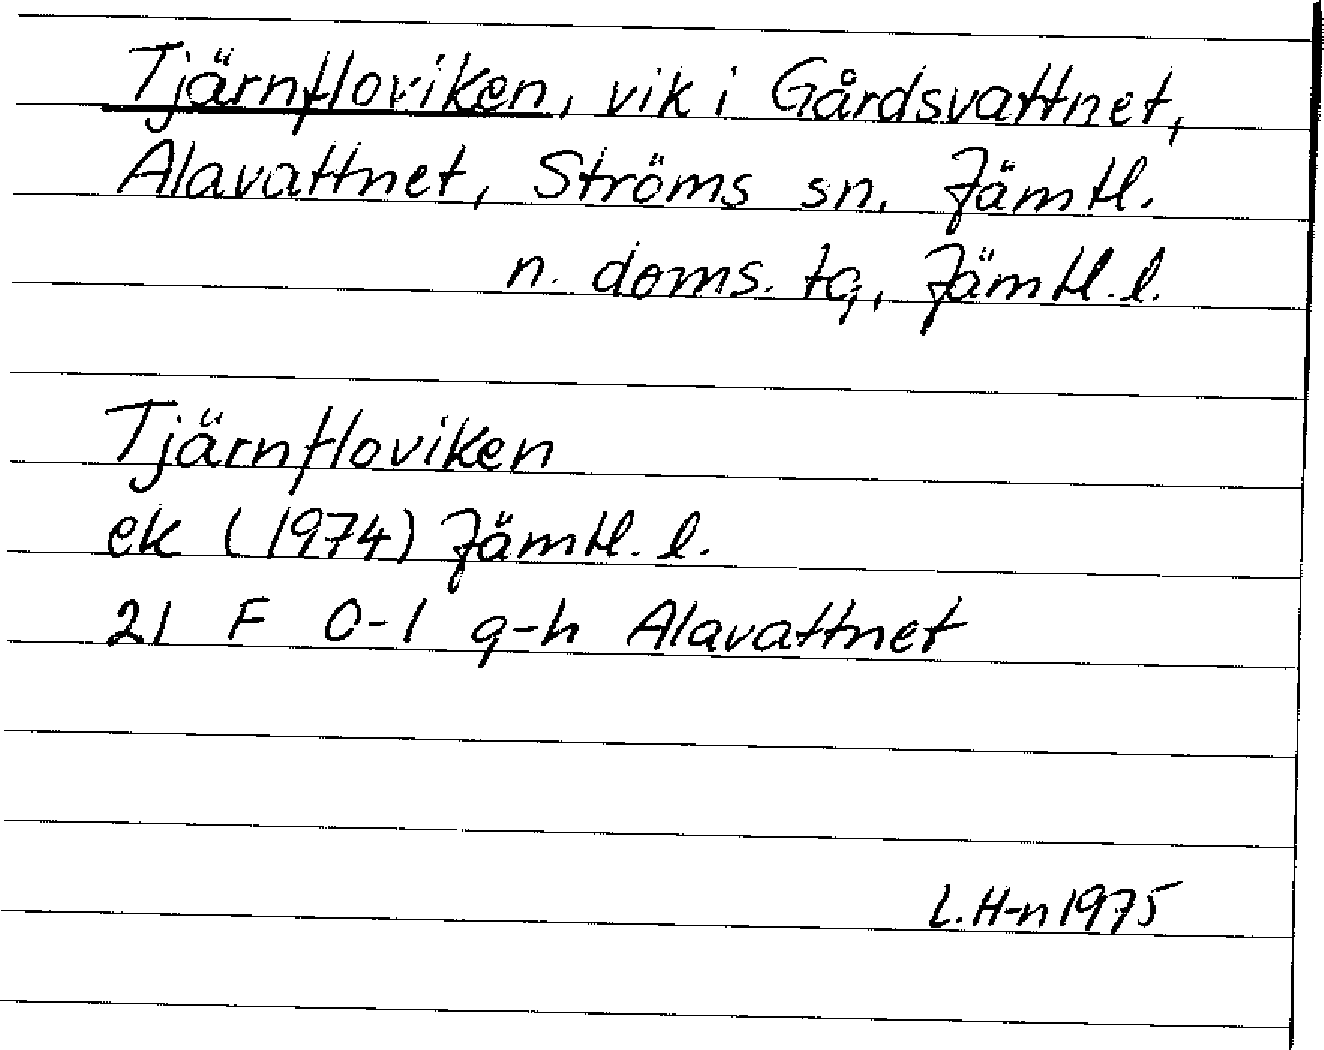 Tjärnfloviken, vik i Gårdsvattnet,
Alavattnet, Ströms sn. Jämtl.
n. doms. tg, Jämtl. l.
Tjärnfloviken
ek (1974) Jämtl. l.
21 F 0-1 g-h Alavattnet
L. H-n 1975